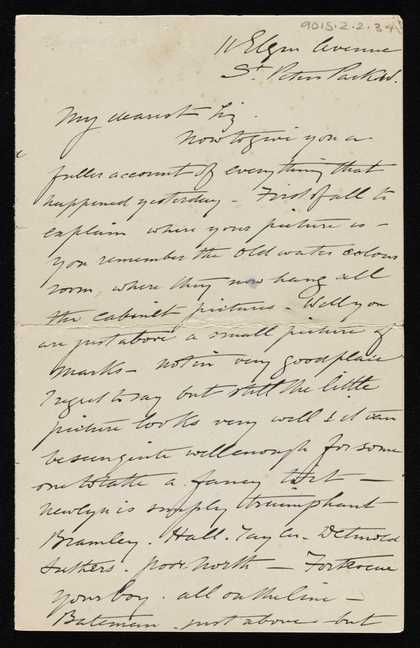 9015.2.2.34
11 Elgin Avenue
St Peters Park W.
My dearest Liz.
Now to give you a
fuller account of everything that
happened yesterday - First of all to
explain where your picture is -
you remember the old water colour
room, where they now hang all
the cabinet pictures. Well you
are just above a small picture of
Marks - not in very good place
I regret to say but still the little
picture looks very well & it can
be seen quite well enough for some
one to take a fancy to it -
Newlyn is simply triumphant
Bramley. Hall. Tayler. Detmold
Suthers. poor North - Fortescue
your boy. all on the line -
Bateman just above but